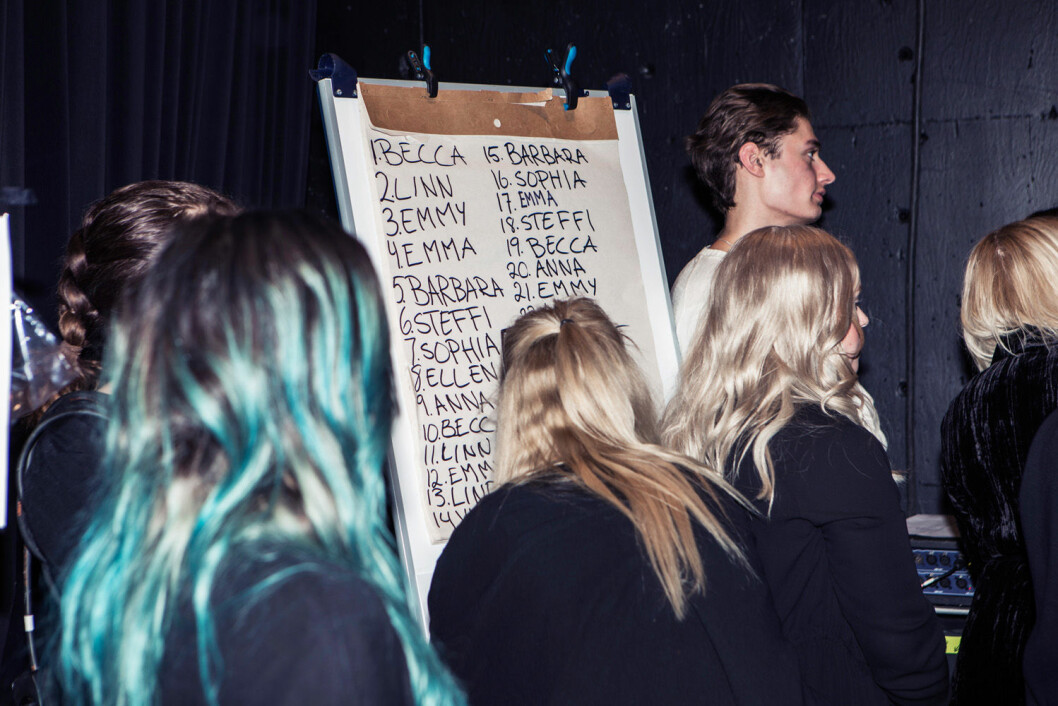 1. BECCA
2. LINN
3. EMMY
4. EMMA
5. BARBARA
6. STEFFI
7. SOPHIA
8. ELLEN
9. ANNA
10. BECC
11. LINN
12. EMM
13. LIN
14.
15. BARBARA
16. SOPHIA
17. EMMA
18. STEFFI
19. BECCA
20. ANNA
21. EMMY